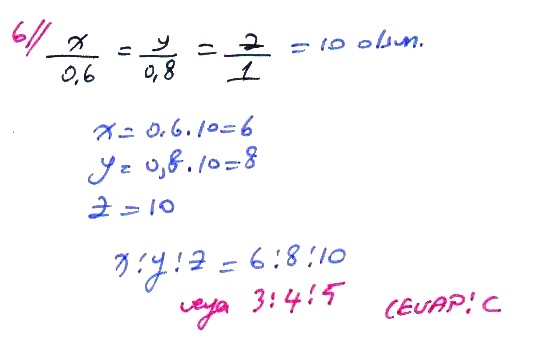 6// x/0,6 = y/0,8 = z/1 = 10 olsun.
x = 0.6.10=6
y = 0,8.10=8
z = 10
x:y:z = 6:8:10
veya 3:4:5 CEVAP: C